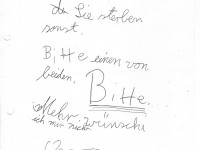 da Sie sterben
sonst.
Bitte einen von
beiden.
Bitte.
Mehr wünsche
ich mir nicht